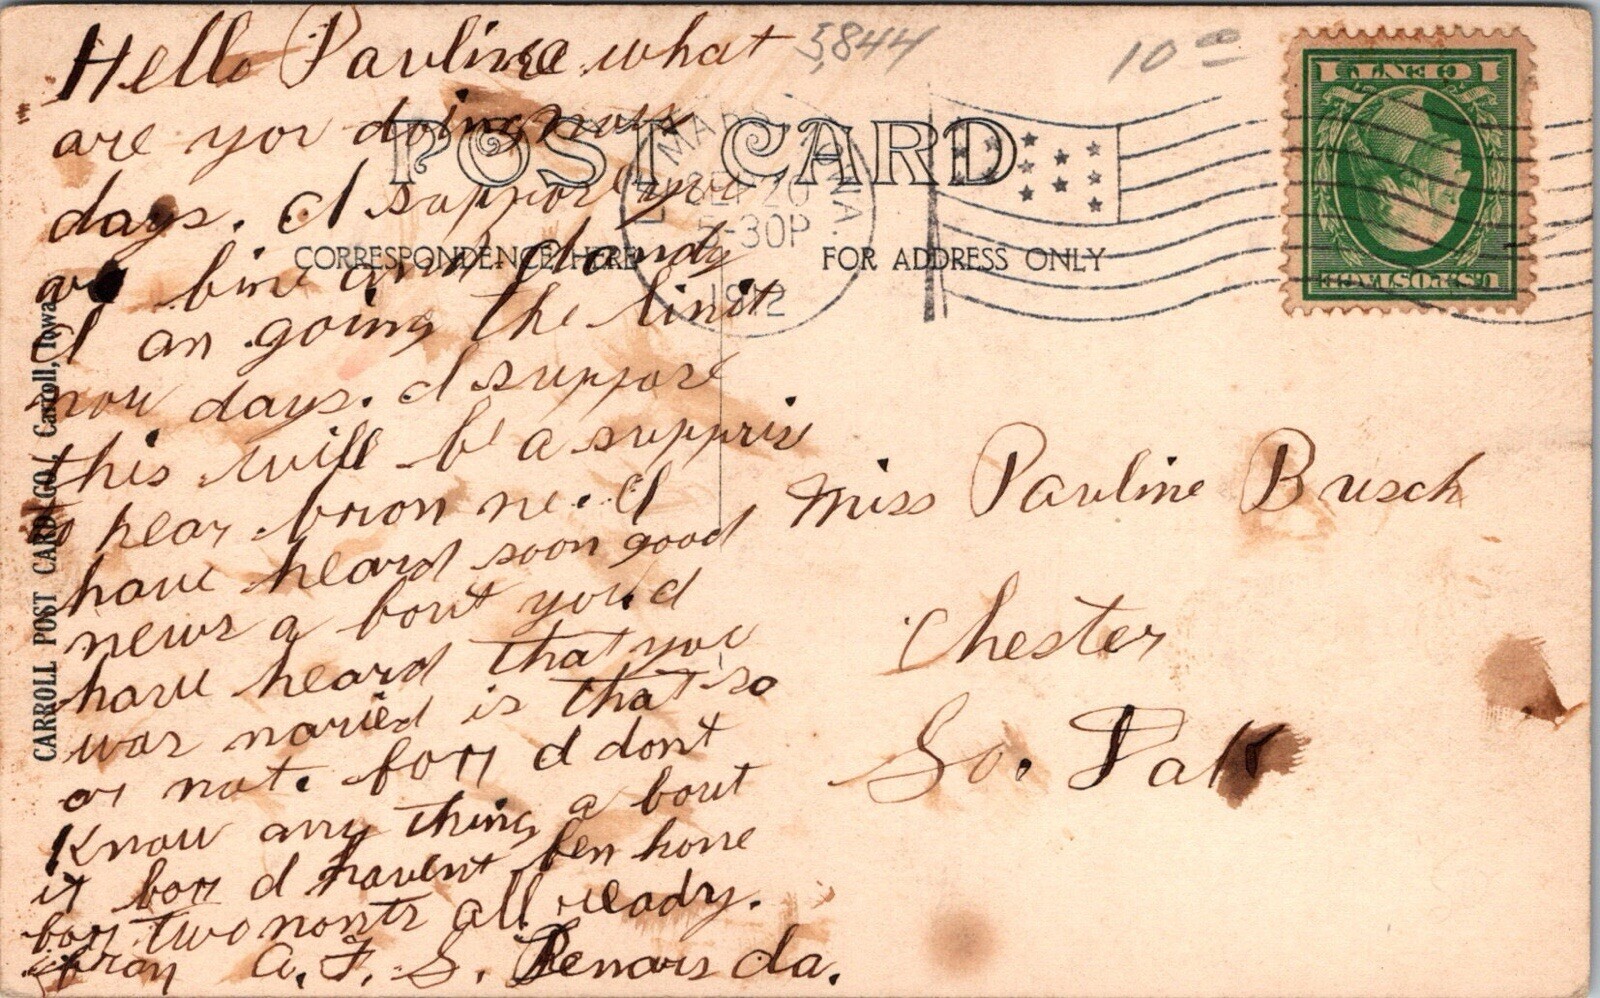 Hello Pauline what
are you doing now
days. I suppos you
are fine and dandy
I am going the limit
now days. I suppose
this will be a supprise
to hear from me. I
have heard soon good
news a bout you. I
have heard that you
was maried is that so
or not. for I dont
Know any thing a bout
it for I havent ben home
for two monts all ready.
from A. F. S. Renars da.
5,844
10 00
POST CARD
CORRESPONDENCE HERE
FOR ADDRESS ONLY
SEP 20
5-30P
1912
1 CENT 1
U.S. POSTAGE
Miss Pauline Busch
Chester
So. Dak
CARROLL POST CARD CO., Carroll, Iowa